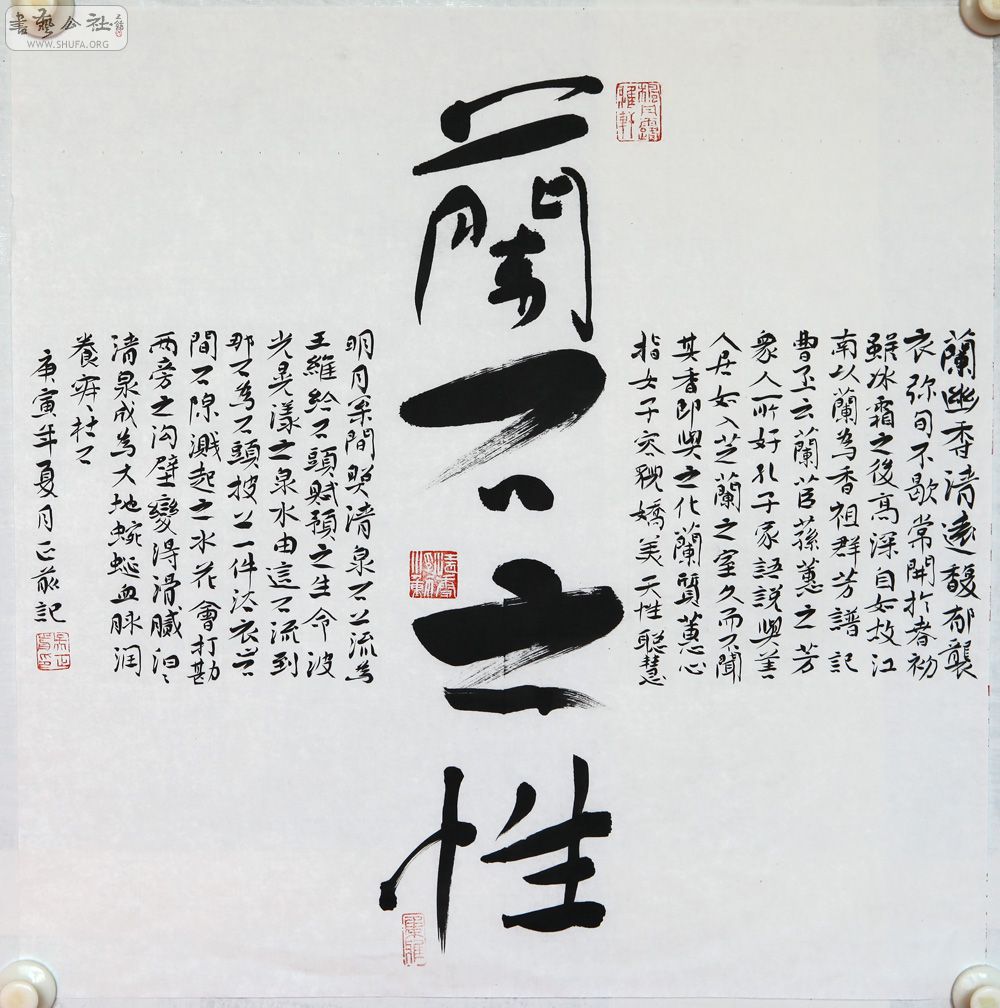 書藝公社
WWW.SHUFA.ORG
蘭石之性
蘭幽香清遠馥郁襲
衣弥旬不歇常開於春初
雖冰霜之後高深自如故江
南以蘭為香祖群芳譜記
曹丕云蘭茞蓀蕙之芳
衆人所好孔子家語說與善
人居如入芝蘭之室久而不聞
其香即與之化蘭質蕙心
指女子容貌嬌美天性聪慧
明月來間照清泉石上流為
王維給石頭賦預之生命波
光晃漾之泉水由這石流到
那石為石頭披上一件法衣岩
間石隙濺起之水花會打勘
兩旁之沟壁變得滑膩汩汩
清泉成為大地蜿蜒血脉润
養
庚寅年夏月正
記